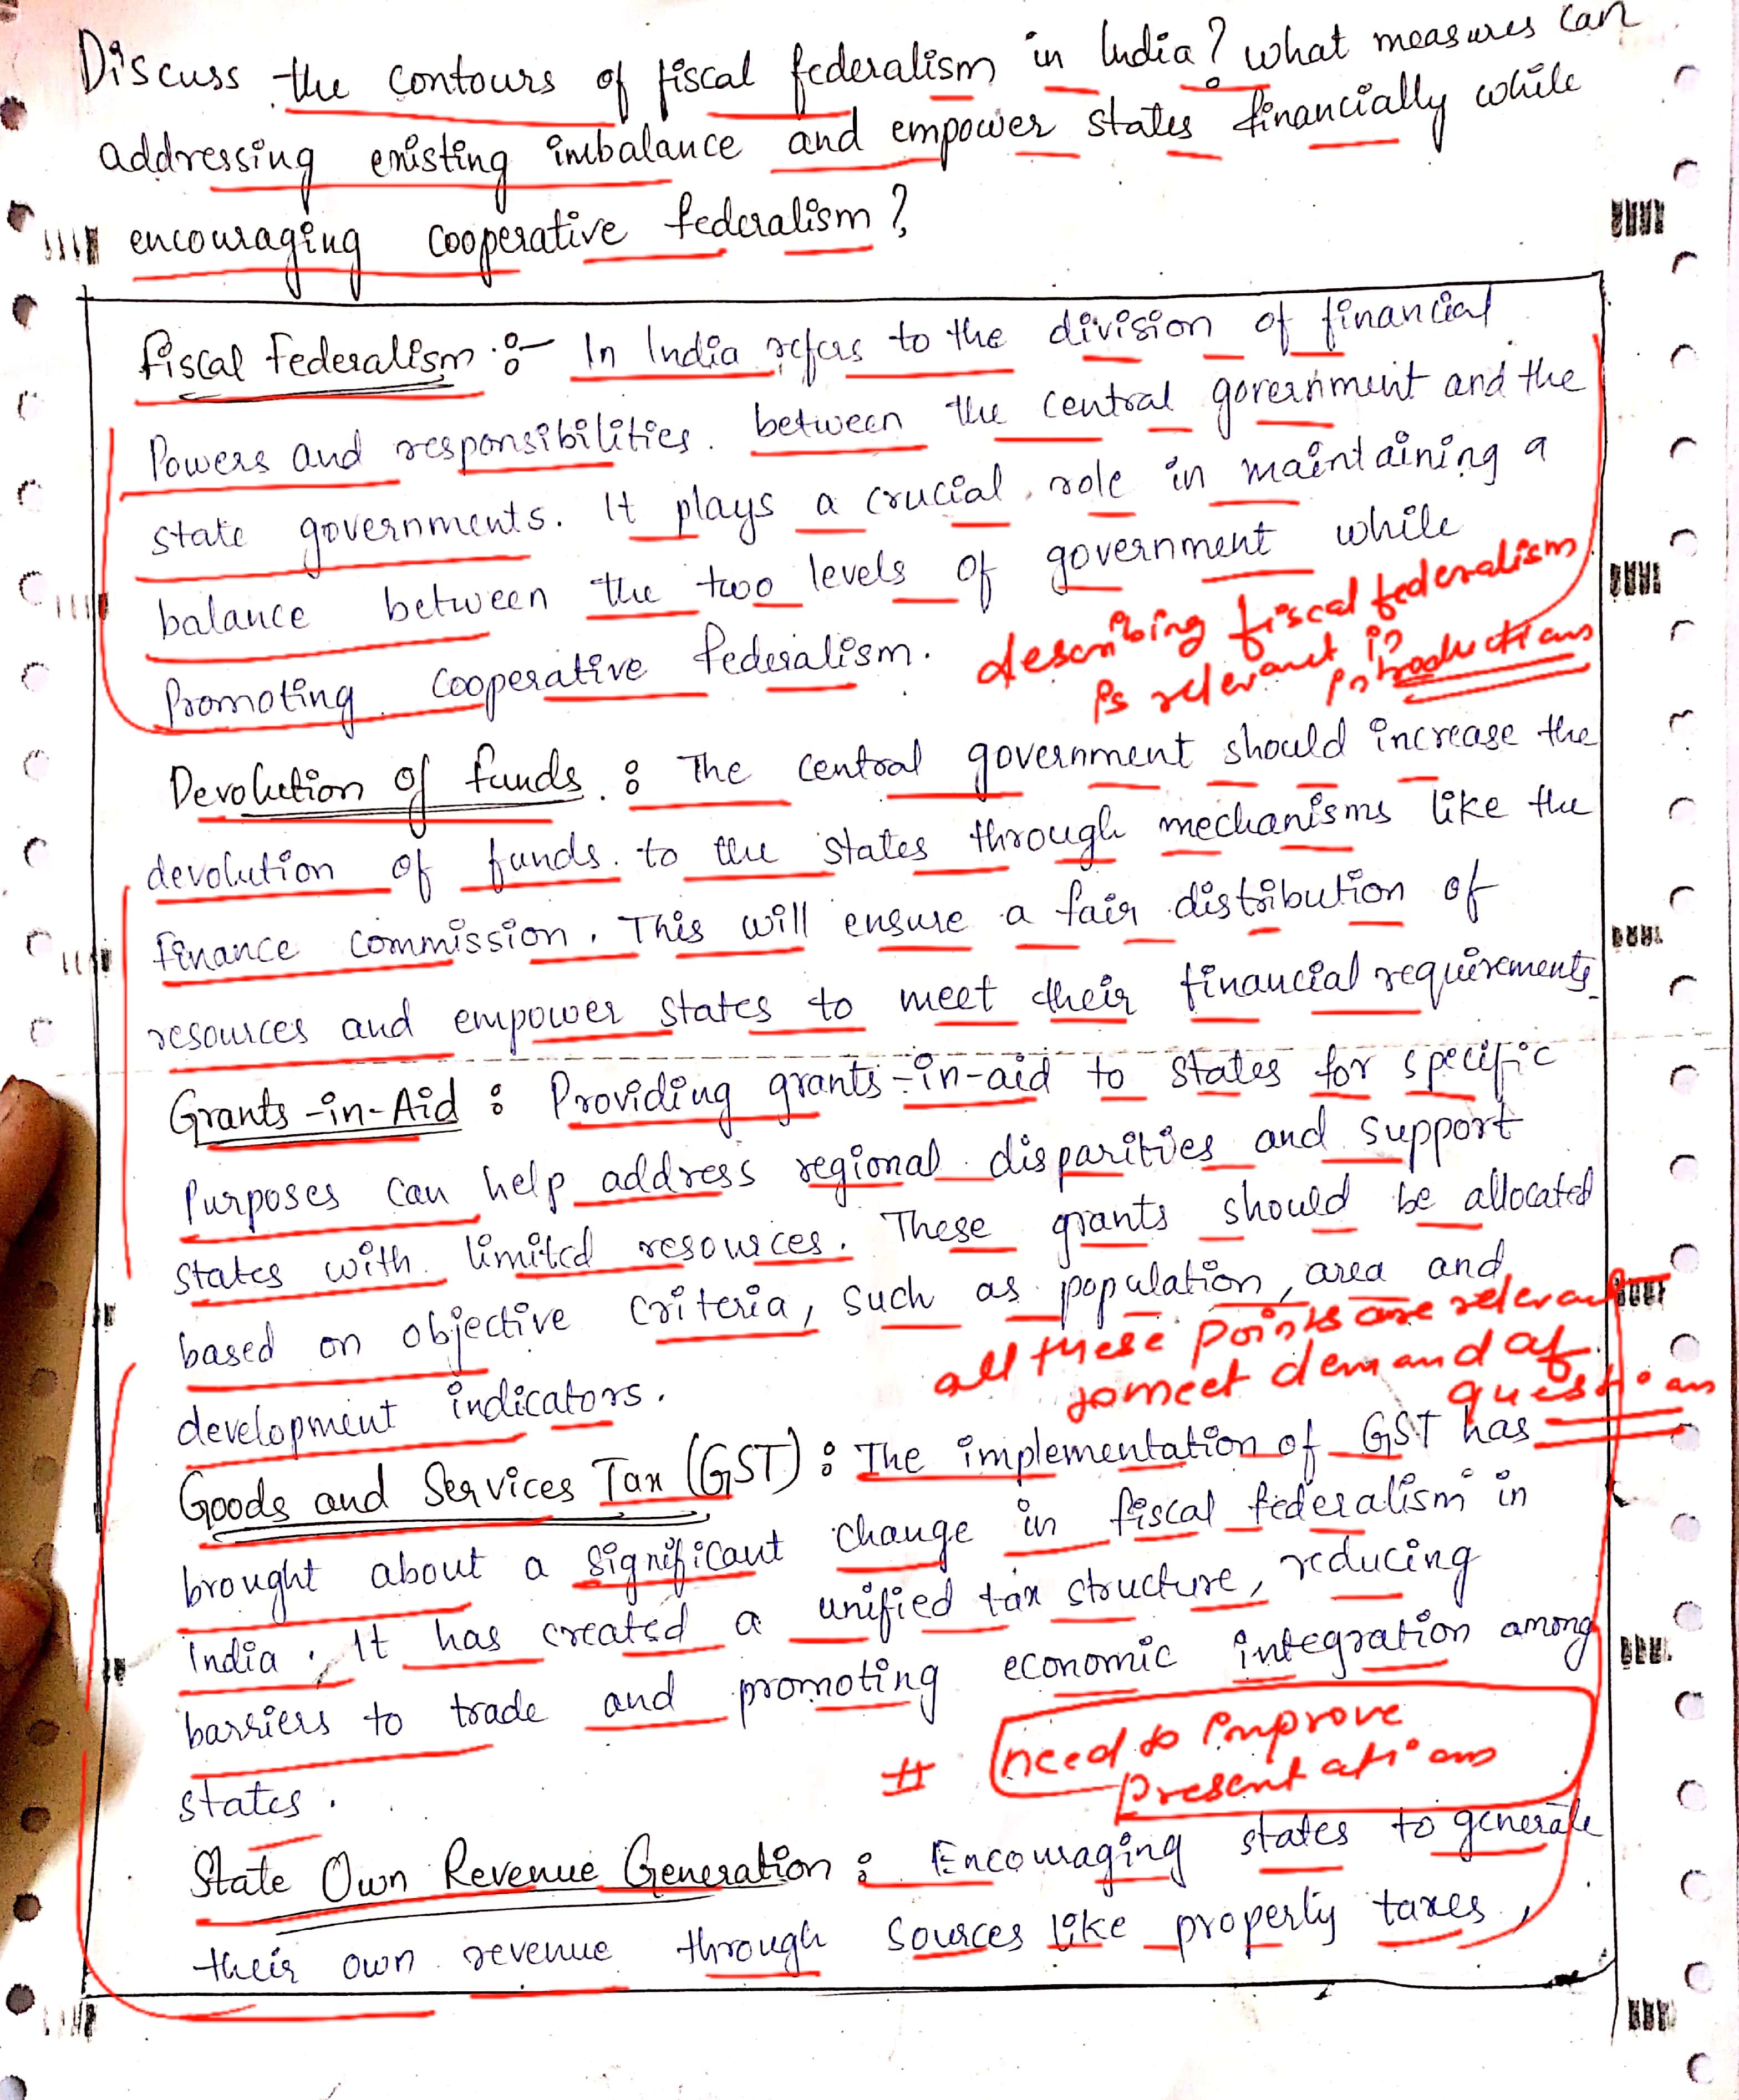 Discuss the contours of fiscal federalism in India? what measures can
addressing existing imbalance and empower states financially while
encouraging cooperative federalism?
Fiscal Federalism :- In India refers to the division of financial
Powers and responsibilities. between the central government and the
state governments. It plays a crucial role in maintaining a
balance between the two levels of government while
Promoting cooperative federalism.
describing fiscal federalism
is relevant in
introductions
Devolution of funds : The central government should increase the
devolution of funds. to the states through mechanisms like the
finance commission. This will ensure a fair distribution of
resources and empower states to meet their financial requirements
Grants-in-Aid : Providing grants-in-aid to states for specific
Purposes can help address regional disparities and support
states with limited resources. These grants should be allocated
based on objective criteria, such as population, area and
development indicators.
all these points are relevant
to meet demand of
questions
Goods and Services Tax (GST) : The implementation of GST has
brought about a significant change in fiscal federalism in
India. It has created a unified tax structure, reducing
barriers to trade and promoting economic integration among
states.
# need to improve
presentations
State Own Revenue Generation : Encouraging states to generate
their own revenue through sources like property taxes,